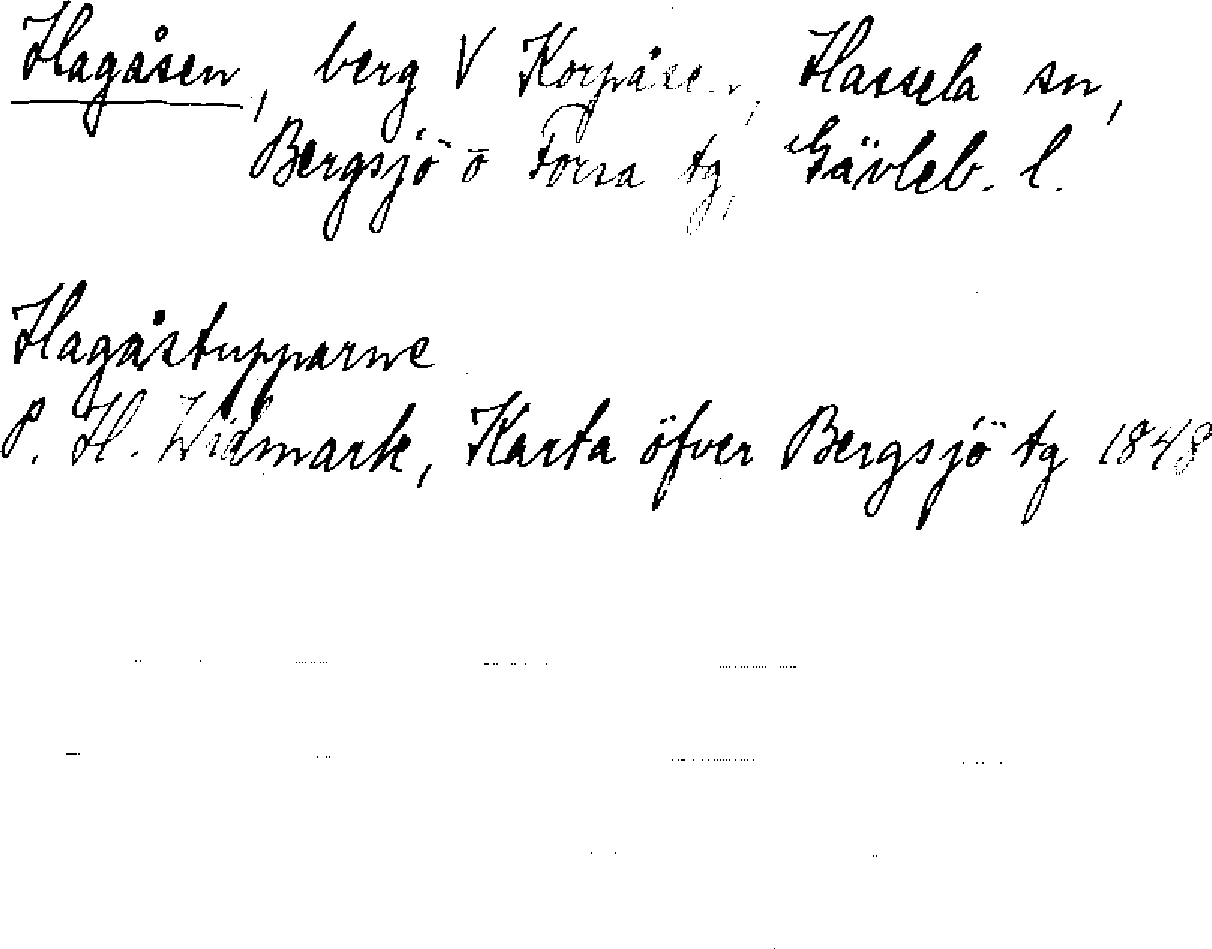 Hagåsen, berg V Korpåsen, Hassela sn,
Bergsjö o Forsa tg, Gävleb. l.
Hagåstupparne
P. H. Widmark, Karta öfver Bergsjö tg 1848